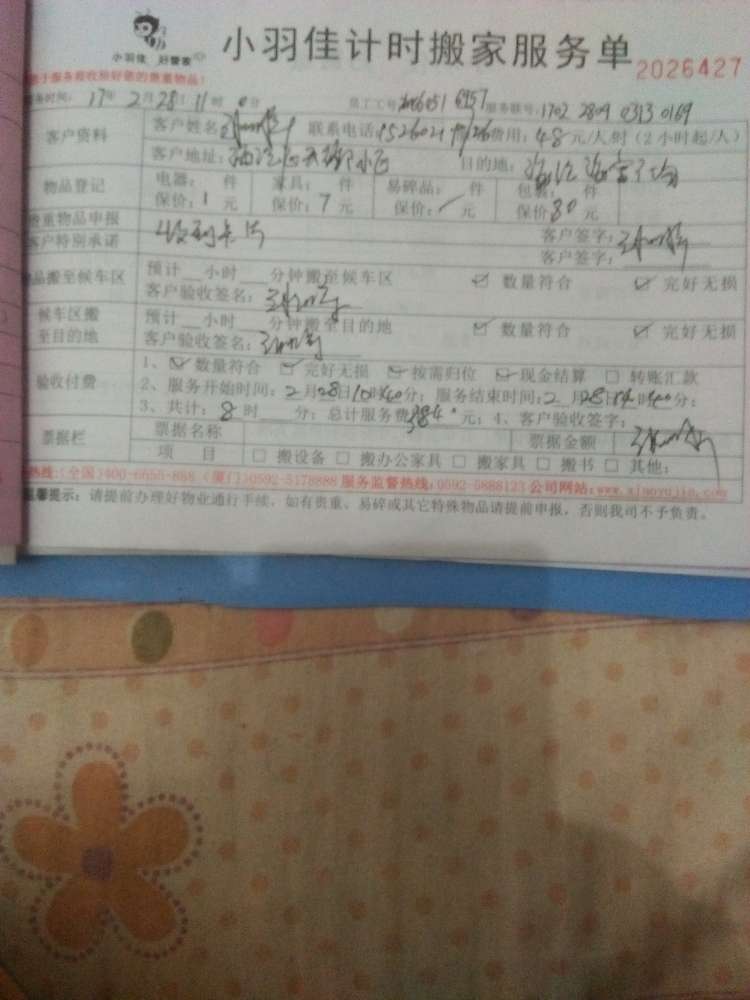 小羽佳 好管家
小羽佳计时搬家服务单
2026427
服务时间： 17年 2月 28日 11时 0分 员工工号 服务联号：1702 2809 0313 0169
客户资料
客户姓名： 联系电话： 费用：48元/人/时（2小时起/人）
客户地址： 目的地：
物品登记
电器： 件 家具： 件 易碎品： 件 包装： 件
保价：1元 保价：7元 保价：/元 保价80元
贵重物品申报
客户特别承诺
收到卡片
客户签字：
客户签字：
物品搬至候车区
预计__小时__分钟搬至候车区 数量符合 完好无损
客户验收签名：
候车区搬
至目的地
预计__小时__分钟搬至目的地 数量符合 完好无损
客户验收签名：
验收付费
1、 数量符合 完好无损 按需归位 现金结算 □ 转账汇款
2、服务开始时间：2月28日10时40分；服务结束时间：2月28日 时40分；
3、共计：8时 分；总计服务费384元；4、客户验收签字：
票据栏
票据名称 票据金额
项 目 □ 搬设备 □ 搬办公家具 □ 搬家具 □ 搬书 □ 其他：
热线：(全国)400-6655-888 (厦门)0592-5178888 服务监督热线：0592-5888123 公司网站：www.xiaoyujia.com
温馨提示：请提前办理好物业通行手续，如有贵重、易碎或其它特殊物品请提前申报，否则我司不予负责。